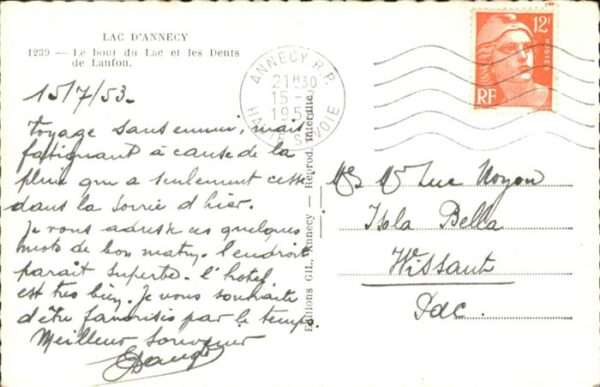 LAC D'ANNECY
1239 — Le bout du Lac et les Dents
de Lanfon.
15/7/53.
Voyage sans ennui, mais
fatiguant à cause de la
pluie qui a seulement cessé
dans la soirée d'hier.
Je vous adresse ces quelques
mots de bon matin. L'endroit
parait superbe. L'hotel
est très bien. Je vous souhaite
d'être favorisés par le temps.
Meilleur souvenir
Editions GIL, Annecy — Reprod. Interdite.
ANNECY R.P.
21H30
15 -
195
HAUTE SAVOIE
12F
RF
Luc Noyon
Isola Bella
Wissant
Pdc.